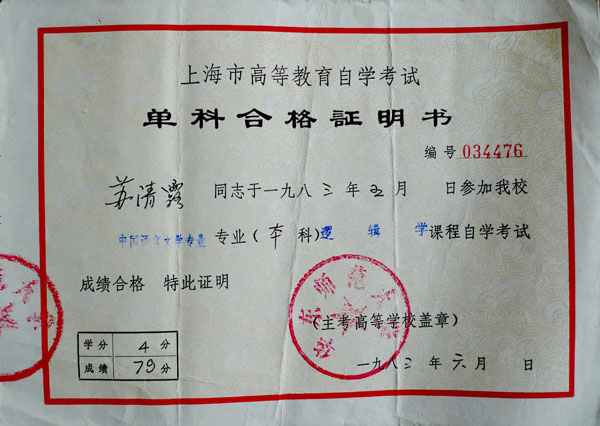 上海市高等教育自学考试
单科合格証明书
编号 034476
苏清露 同志于一九八三年五月 日参加我校
中国语言文学专业 专业(本科)逻辑学课程自学考试
成绩合格 特此证明
(主考高等学校盖章)
学分 4分
成绩 79分
一九八三年六月 日
华东师范大学